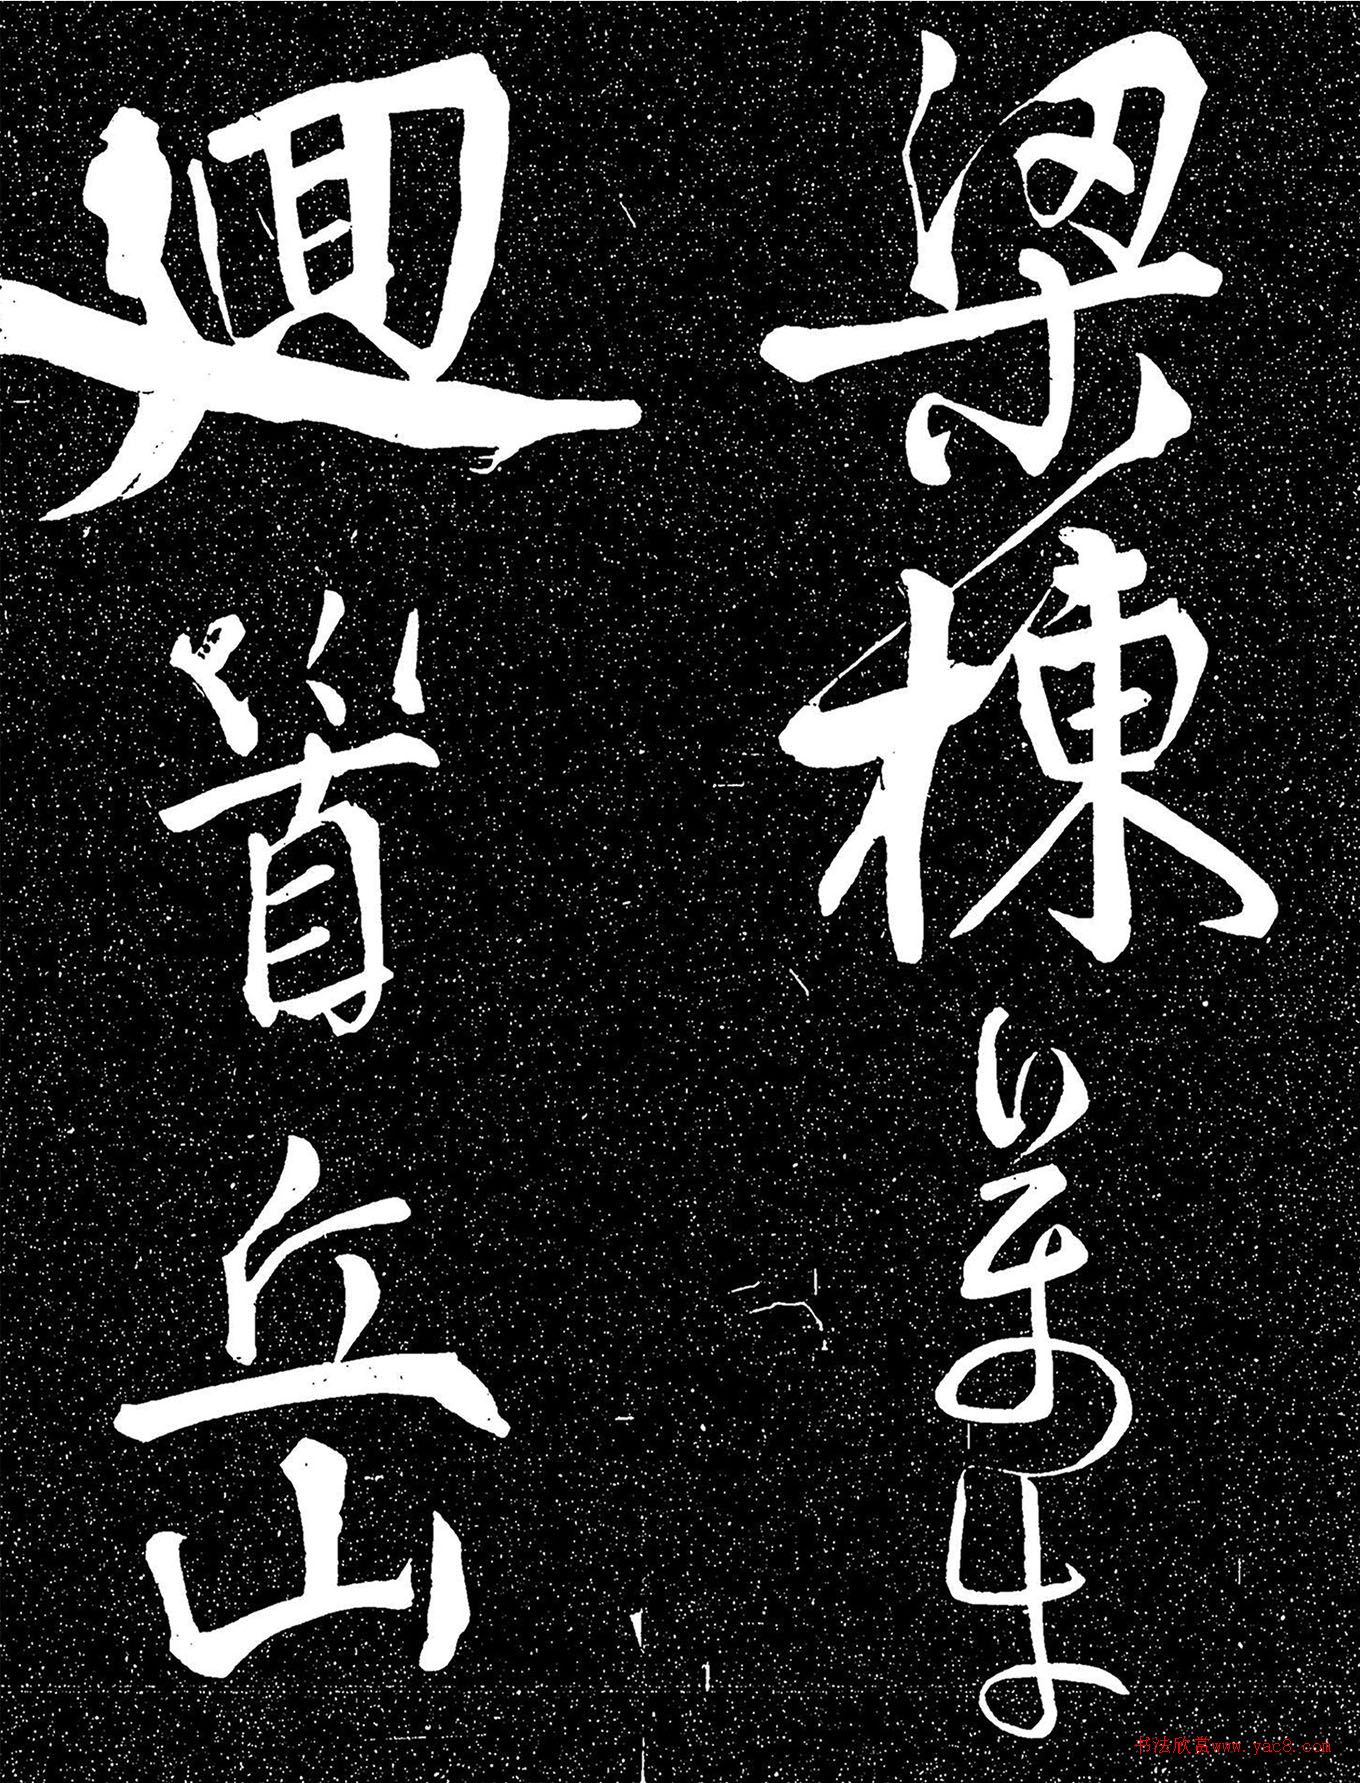 梁棟萬牛
迴首丘山
书法欣赏www.yac8.com